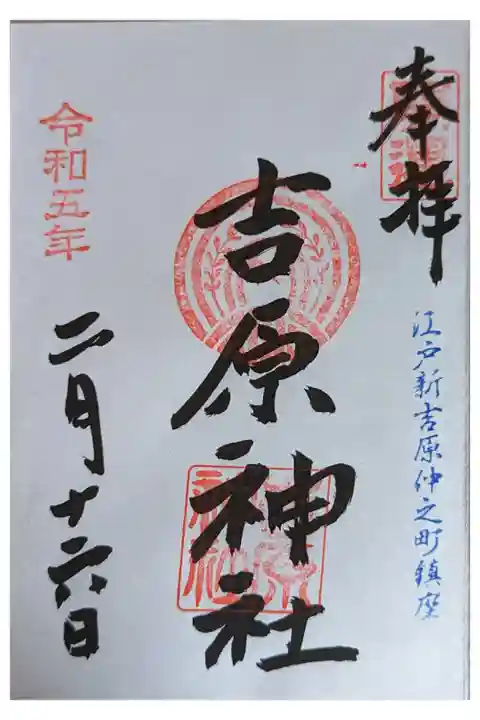 奉拝
江戸新吉原仲之町鎮座
吉原神社
令和五年
二月十六日